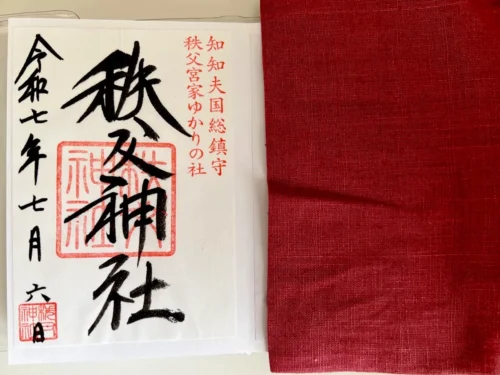 知知夫国総鎮守
秩父宮家ゆかりの社
秩父神社
令和七年七月六日
秩父
神社